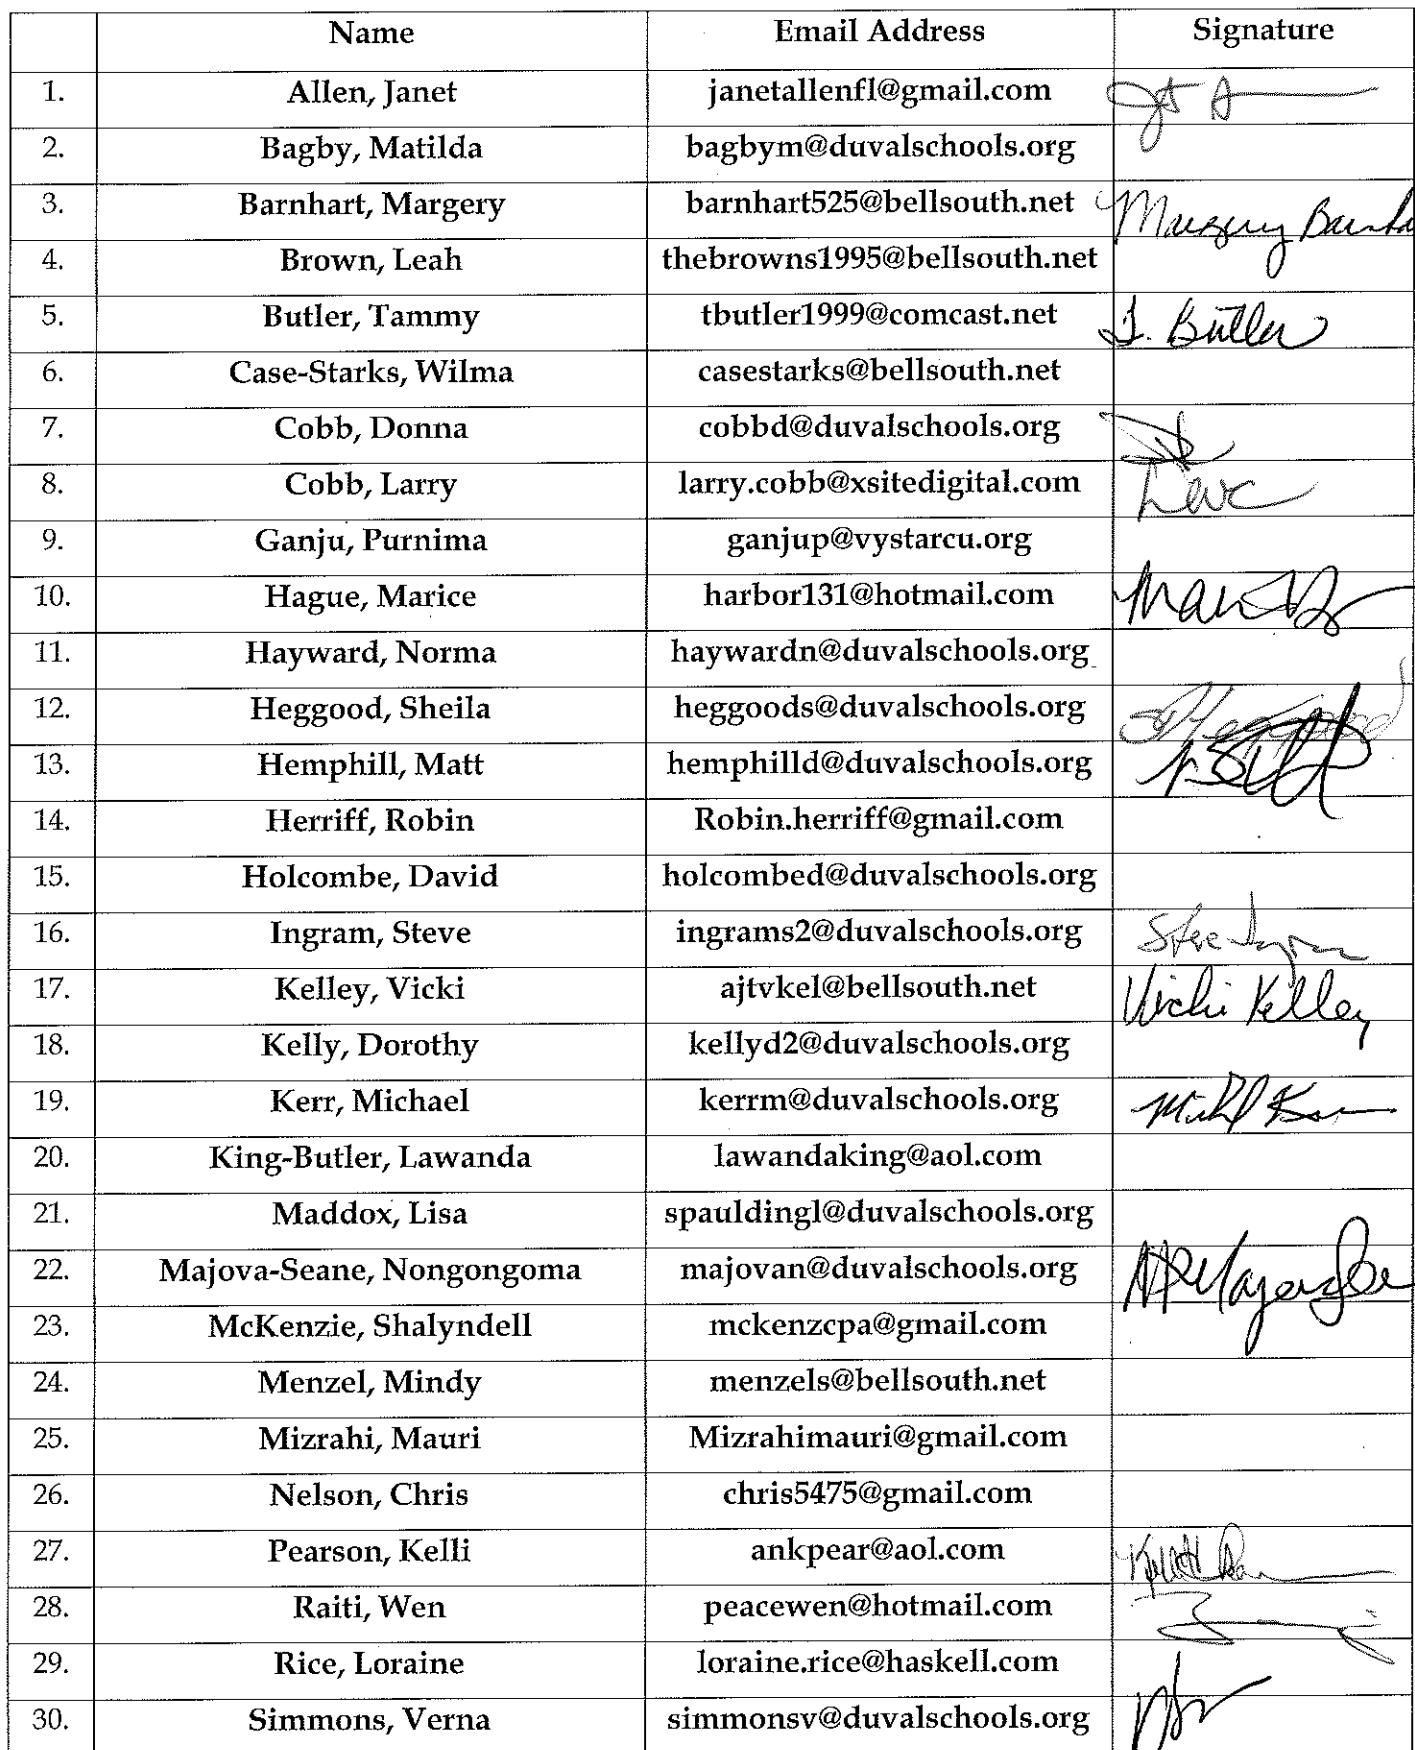 Name Email Address Signature
1. Allen, Janet janetallenfl@gmail.com
2. Bagby, Matilda bagbym@duvalschools.org
3. Barnhart, Margery barnhart525@bellsouth.net Margery Barnha
4. Brown, Leah thebrowns1995@bellsouth.net
5. Butler, Tammy tbutler1999@comcast.net T. Butler
6. Case-Starks, Wilma casestarks@bellsouth.net
7. Cobb, Donna cobbd@duvalschools.org
8. Cobb, Larry larry.cobb@xsitedigital.com
9. Ganju, Purnima ganjup@vystarcu.org
10. Hague, Marice harbor131@hotmail.com
11. Hayward, Norma haywardn@duvalschools.org
12. Heggood, Sheila heggoods@duvalschools.org S Heggood
13. Hemphill, Matt hemphilld@duvalschools.org
14. Herriff, Robin Robin.herriff@gmail.com
15. Holcombe, David holcombed@duvalschools.org
16. Ingram, Steve ingrams2@duvalschools.org Steve Ingram
17. Kelley, Vicki ajtvkel@bellsouth.net Vicki Kelley
18. Kelly, Dorothy kellyd2@duvalschools.org
19. Kerr, Michael kerrm@duvalschools.org
20. King-Butler, Lawanda lawandaking@aol.com
21. Maddox, Lisa spauldingl@duvalschools.org
22. Majova-Seane, Nongongoma majovan@duvalschools.org
23. McKenzie, Shalyndell mckenzcpa@gmail.com
24. Menzel, Mindy menzels@bellsouth.net
25. Mizrahi, Mauri Mizrahimauri@gmail.com
26. Nelson, Chris chris5475@gmail.com
27. Pearson, Kelli ankpear@aol.com
28. Raiti, Wen peacewen@hotmail.com
29. Rice, Loraine loraine.rice@haskell.com
30. Simmons, Verna simmonsv@duvalschools.org